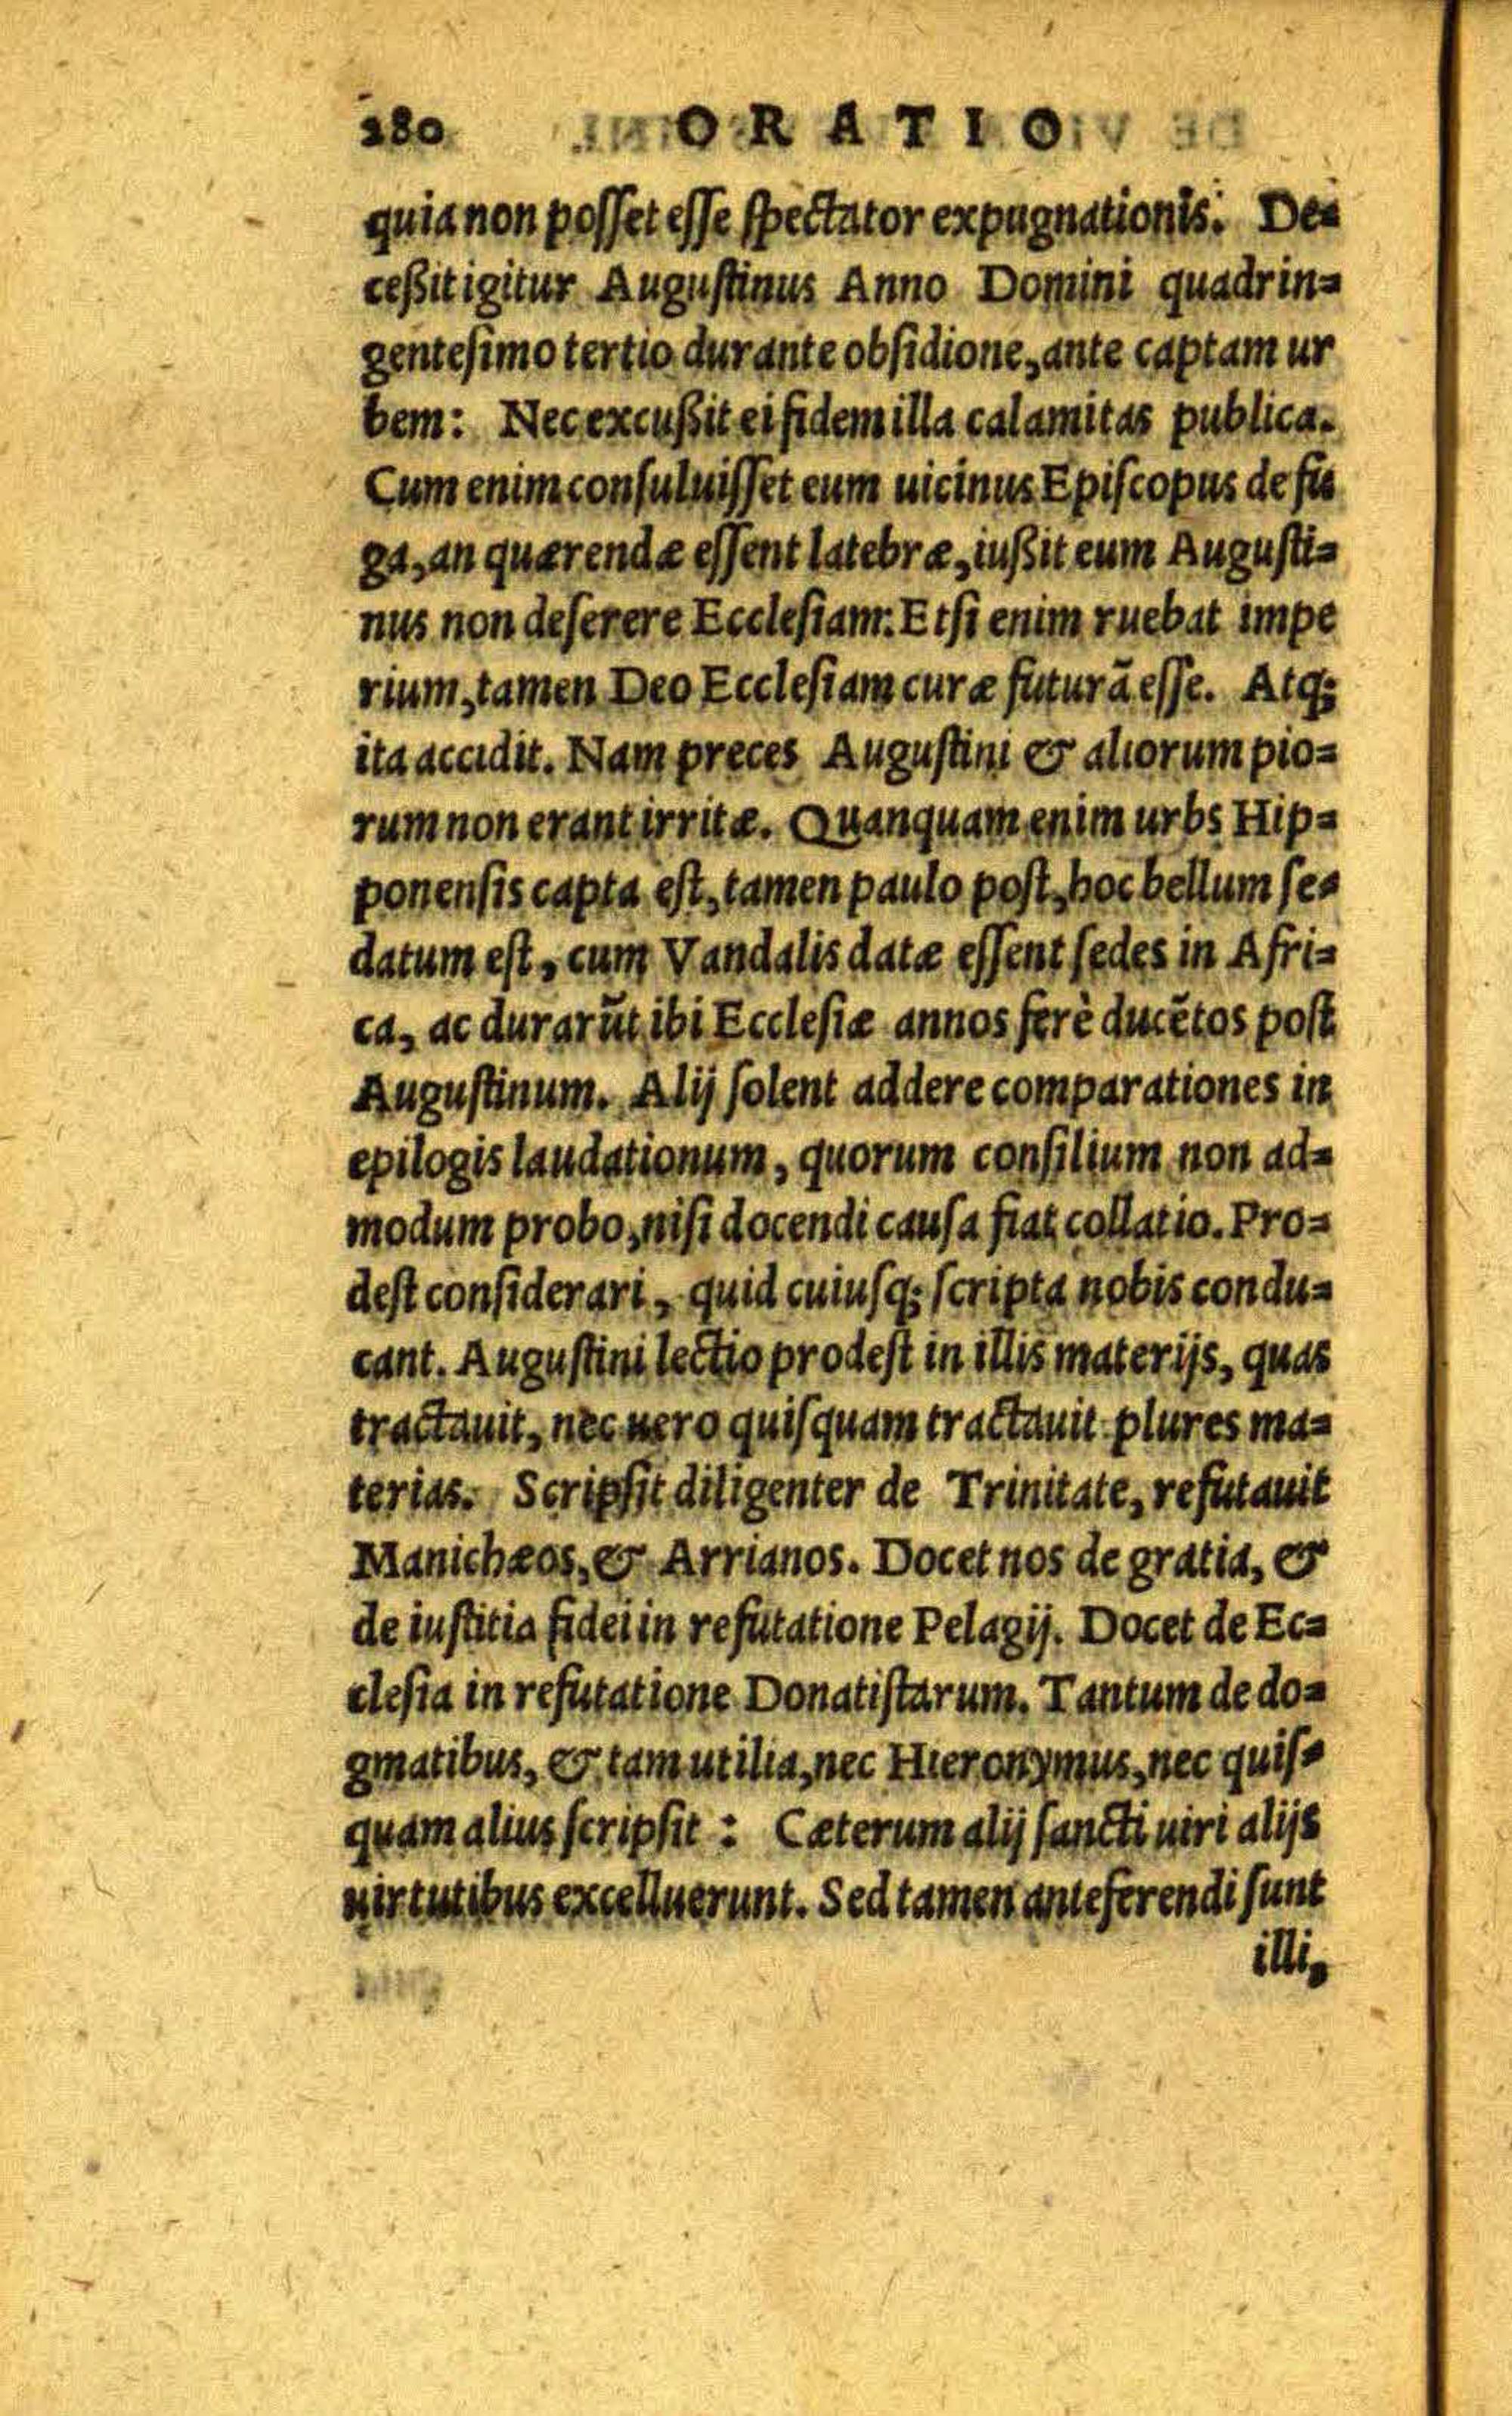 280 ORATIO
quia non poſſet eſſe ſpectator expugnationis. De=
ceßit igitur Auguſtinus Anno Domini quadrin=
genteſimo tertio durante obſidione, ante captam ur
bem: Nec excußit ei fidem illa calamitas publica.
Cum enim conſuluiſſet eum uicinus Epiſcopus de fu
ga, an quærendæ eſſent latebræ, iußit eum Auguſti=
nus non deſerere Eccleſiam. Etſi enim ruebat impe
rium, tamen Deo Eccleſiam curæ futurã eſſe. Atq;
ita accidit. Nam preces Auguſtini & aliorum pio=
rum non erant irritæ. Quanquam enim urbs Hip=
ponenſis capta eſt, tamen paulo poſt, hoc bellum ſe=
datum eſt, cum Vandalis datæ eſſent ſedes in Afri=
ca, ac durarũt ibi Eccleſiæ annos ferè ducẽtos poſt
Auguſtinum. Alij ſolent addere comparationes in
epilogis laudationum, quorum conſilium non ad=
modum probo, niſi docendi cauſa fiat collatio. Pro=
deſt conſiderari, quid cuiuſq; ſcripta nobis condu=
cant. Auguſtini lectio prodeſt in illis materijs, quas
tractauit, nec uero quiſquam tractauit plures ma=
terias. Scripſit diligenter de Trinitate, refutauit
Manichæos, & Arrianos. Docet nos de gratia, &
de iuſtitia fidei in refutatione Pelagij. Docet de Ec=
cleſia in refutatione Donatiſtarum. Tantum de do=
gmatibus, & tam utilia, nec Hieronymus, nec quiſ=
quam alius ſcripſit: Cæterum alij ſancti uiri alijs
uirtutibus excelluerunt. Sed tamen anteferendi ſunt
illi,